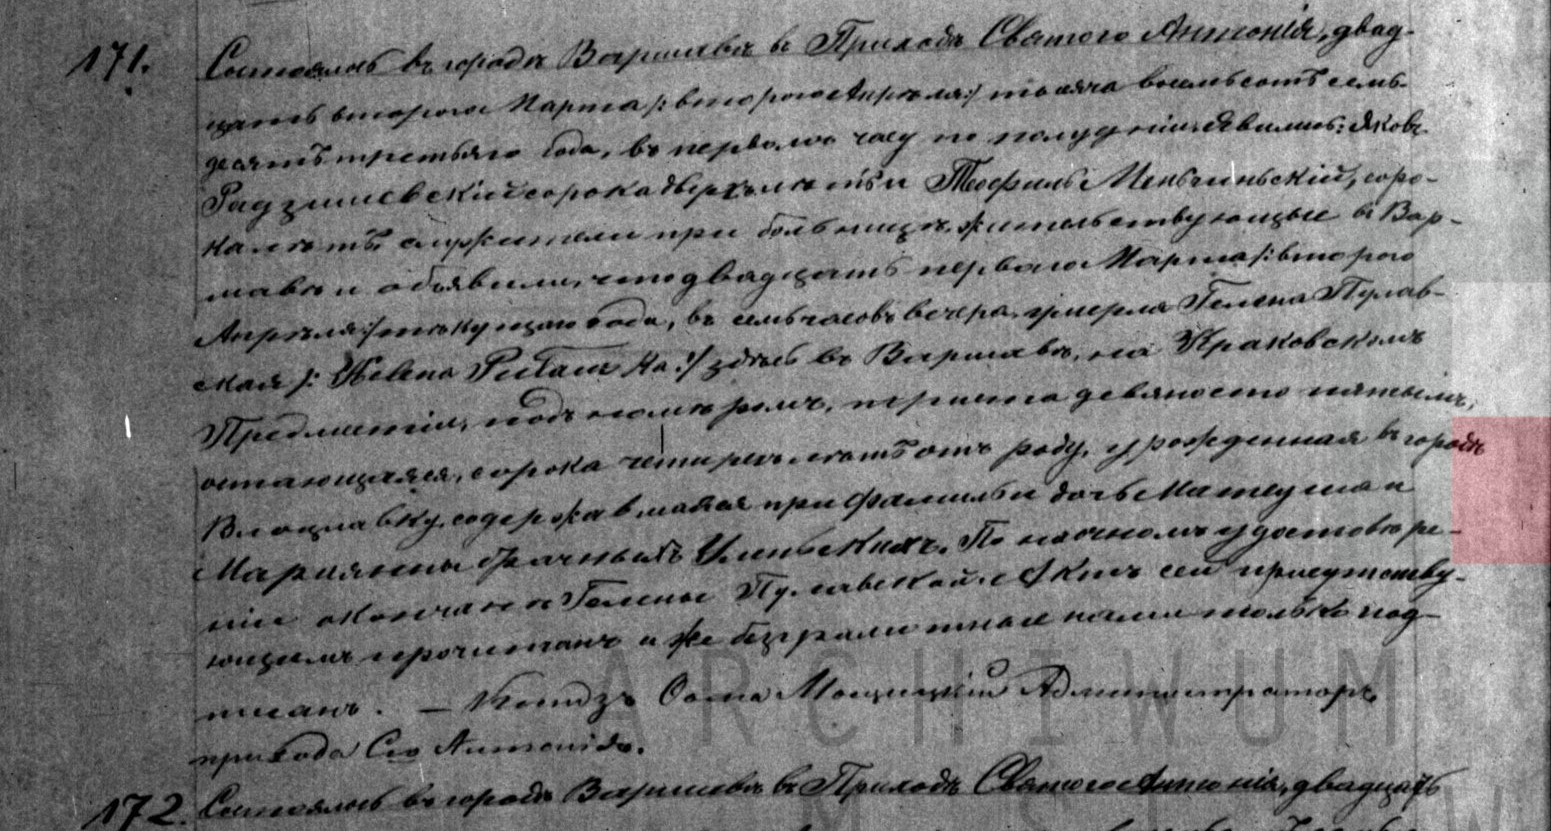 171. Состоялось въ городѣ Варшавѣ въ Приходѣ Святого Антонія, двад-
цать второго Марта /: второго Апрѣля :/ тысяча восемьсотъ семь-
десятъ третьяго года, въ первомъ часу по полудни. Явились: Яковъ
Радзишевскій сорока двухъ лѣтъ и Теофиль Меньчиньскій, соро-
ка лѣтъ служители при больницѣ, жительствующые въ Вар-
шавѣ и объявили, что двадцать первого Марта /: второго
Апрѣля :/ текущаго года, въ семь часовъ вечера, умерла Гелена Пулав-
ская /: Helena :/ здѣсь въ Варшавѣ, на Краковскомъ
Предмѣстіи, подъ номеромъ, триста девяносто пятымъ,
сорока четырехъ лѣтъ отъ роду, урожденная въ городѣ
Влоцлавку, содержавшаяся при фамиліи дочь Матеуша и
Маріянны брачныхъ. По наочномъ удостовѣре-
ніи о кончине Гелены Пулавской. Актъ сей присутству-
ющимъ прочитанъ а же безграмотные нами только под-
писанъ. – Ксендзъ Администраторъ
прихода Св. Антонія.
172. Состоялось въ городѣ Варшавѣ въ Приходѣ Святого Антонія, двадцать
ARCHIWUM